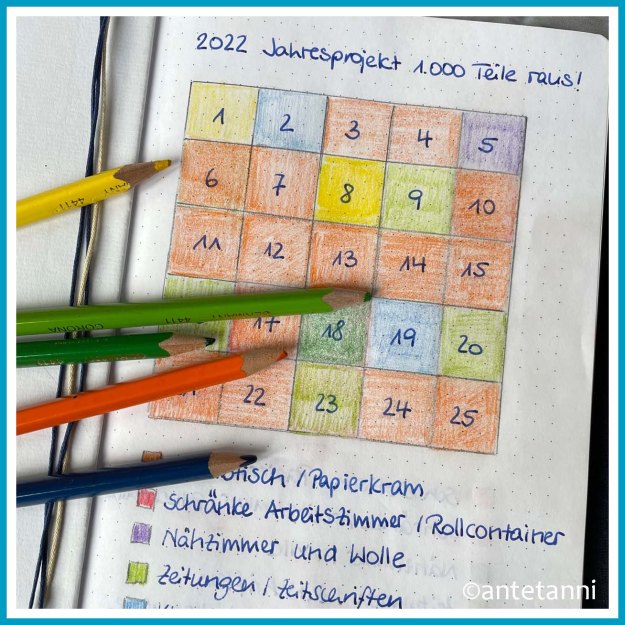 2022 Jahresprojekt 1.000 Teile raus!
1 2 3 4 5
6 7 8 9 10
11 12 13 14 15
17 18 19 20
22 23 24 25
/Papierkram
Schränke Arbeitszimmer / Rollcontainer
Nähzimmer und Wolle
Zeitungen / Zeitschriften
4411
CORONA
©antetanni